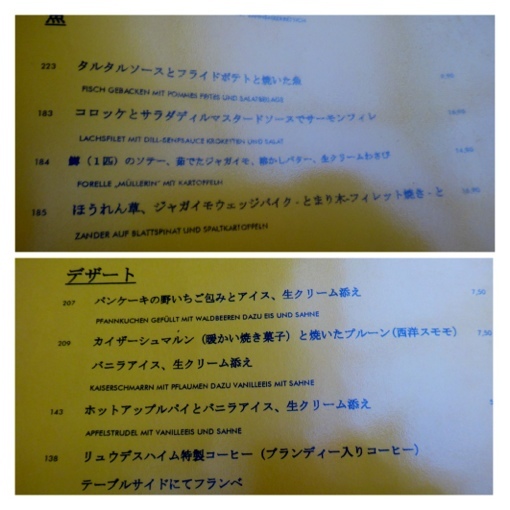 魚
223 タルタルソースとフライドポテトと焼いた魚
FISCH GEBACKEN MIT POMMES FRITES UND SALATBEILAGE
183 コロッケとサラダディルマスタードソースでサーモンフィレ
LACHSFILET MIT DILL-SENFSAUCE KROKETTEN UND SALAT
184 鱒（1匹）のソテー、茹でたジャガイモ、溶かしバター、生クリームわさび
FORELLE „MÜLLERIN" MIT KARTOFFELN
185 ほうれん草、ジャガイモウェッジバイク - とまり木-フィレット焼き - と
ZANDER AUF BLATTSPINAT UND SPALTKARTOFFELN
デザート
207 パンケーキの野いちご包みとアイス、生クリーム添え 7,50
PFANNKUCHEN GEFÜLLT MIT WALDBEEREN DAZU EIS UND SAHNE
209 カイザーシュマルン（暖かい焼き菓子）と焼いたプルーン(西洋スモモ) 7,50
バニラアイス、生クリーム添え
KAISERSCHMARRN MIT PFLAUMEN DAZU VANILLEEIS MIT SAHNE
143 ホットアップルパイとバニラアイス、生クリーム添え
APFELSTRUDEL MIT VANILLEEIS UND SAHNE
138 リュウデスハイム特製コーヒー（ブランディー入りコーヒー）
テーブルサイドにてフランベ